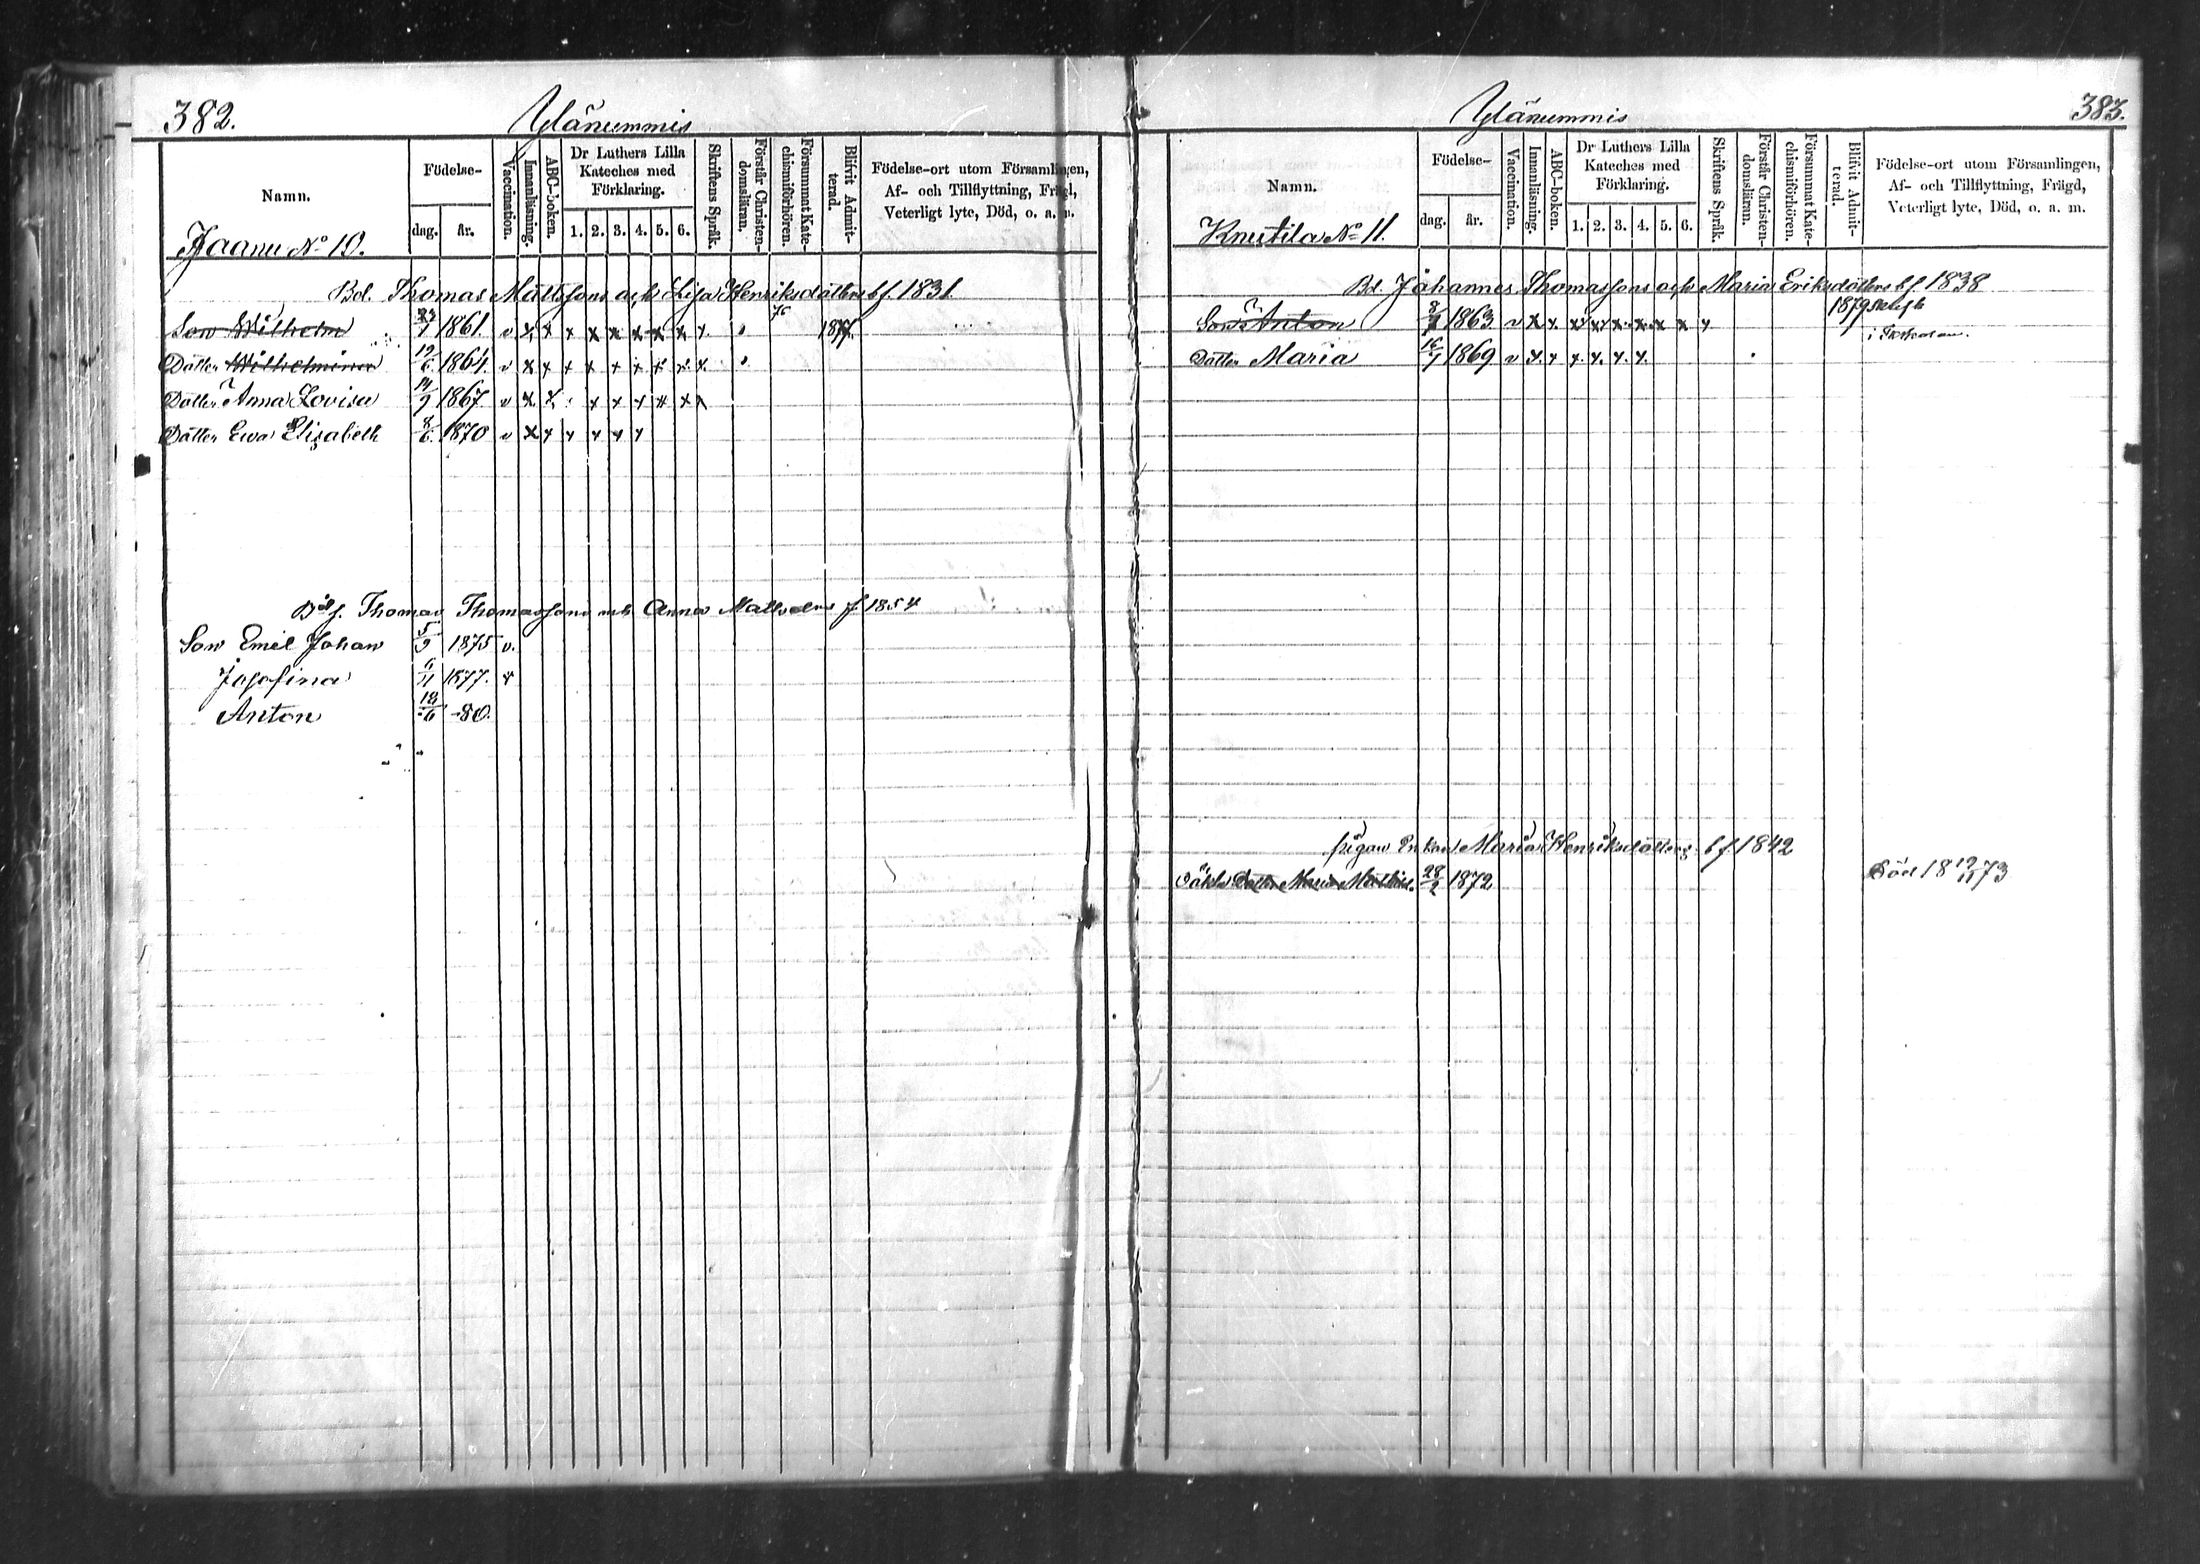 382.
Ylänummis
Namn.
Födelse-
dag.
år.
Vaccination.
Innanläsning.
ABC-boken.
Dr Luthers Lilla Kateches med Förklaring.
1. 2. 3. 4. 5. 6.
Skriftens Språk.
Förstår Christendomsläran.
Försummat Katechismiförhören.
Blifvit Admitterad.
Födelse-ort utom Församlingen, Af- och Tillflyttning, Frägd, Veterligt lyte, Död, o. a. m.
Jaanu No 10.
Bd. Thomas Mattssons och Lisa Henriksdotters bf. 1831
Son Wilhelm 23/1 1861. v x x x x x x x x x 76 1877.
Dotter Wilhelmina 19/6 1864. v x x x x x x x x x
Dotter Anna Lovisa 14/9 1867. v x x x x x x x x
Dotter Ewa Elisabeth 8/6 1870 v x x x x x x
Thomas Thomassons och Anna f. 1854
Son Emil Johan 5/9 1875 v.
Josefina 6/11 1877. v
Anton 18/6 -80.
383.
Ylänummis
Namn.
Födelse-
dag.
år.
Vaccination.
Innanläsning.
ABC-boken.
Dr Luthers Lilla Kateches med Förklaring.
1. 2. 3. 4. 5. 6.
Skriftens Språk.
Förstår Christendomsläran.
Försummat Katechismiförhören.
Blifvit Admitterad.
Födelse-ort utom Församlingen, Af- och Tillflyttning, Frägd, Veterligt lyte, Död, o. a. m.
Knutila No 11.
Bd. Johannes Thomassons och Maria Eriksdotters bf 1838
Son Anton 8/7 1863 v x x x x x x x x x 1879
i
Dotter Maria 16/7 1869 v x x x x x x
pigan Enkan Maria Henriksdotters bf. 1842
oäkta Dotter Maria 28/2 1872 Död 18 19/11 73